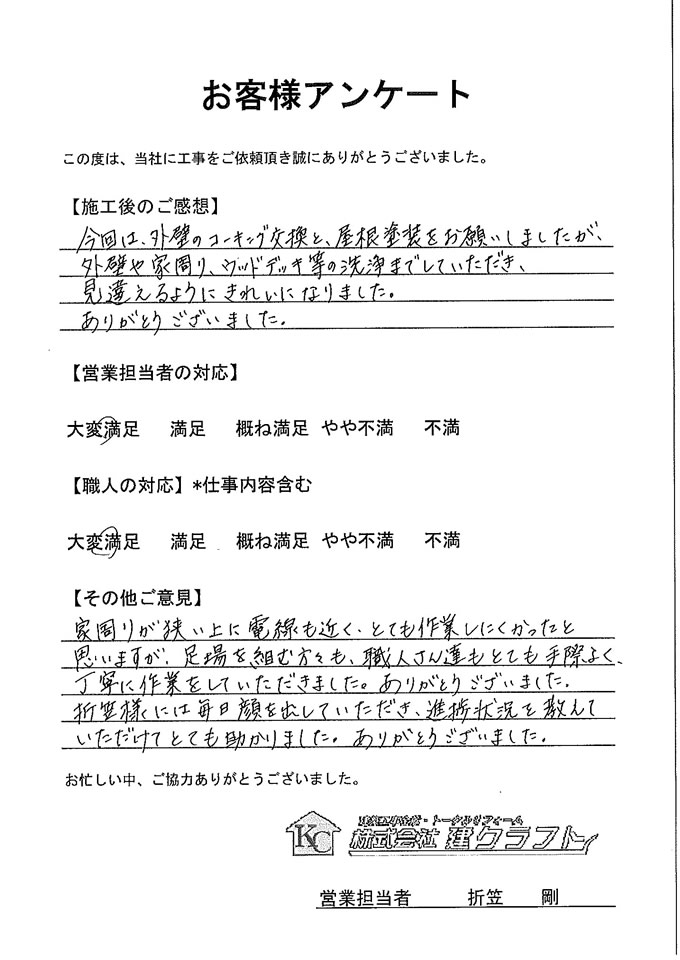 お客様アンケート
この度は、当社に工事をご依頼頂き誠にありがとうございました。
【施工後のご感想】
今回は、外壁のコーキング交換と、屋根塗装をお願いしましたが、
外壁や家周り、ウッドデッキ等の洗浄までしていただき、
見違えるようにきれいになりました。
ありがとうございました。
【営業担当者の対応】
大変満足 満足 概ね満足 やや不満 不満
【職人の対応】*仕事内容含む
大変満足 満足 概ね満足 やや不満 不満
【その他ご意見】
家周りが狭い上に電線も近く、とても作業しにくかったと
思いますが、足場を組む方々も、職人さん達もとても手際よく、
丁寧に作業をしていただきました。ありがとうございました。
折笠様には毎日顔を出していただき、進捗状況を教えて
いただけてとても助かりました。ありがとうございました。
お忙しい中、ご協力ありがとうございました。
・トータルリフォーム
KC 株式会社 建クラフト
営業担当者 折笠 剛